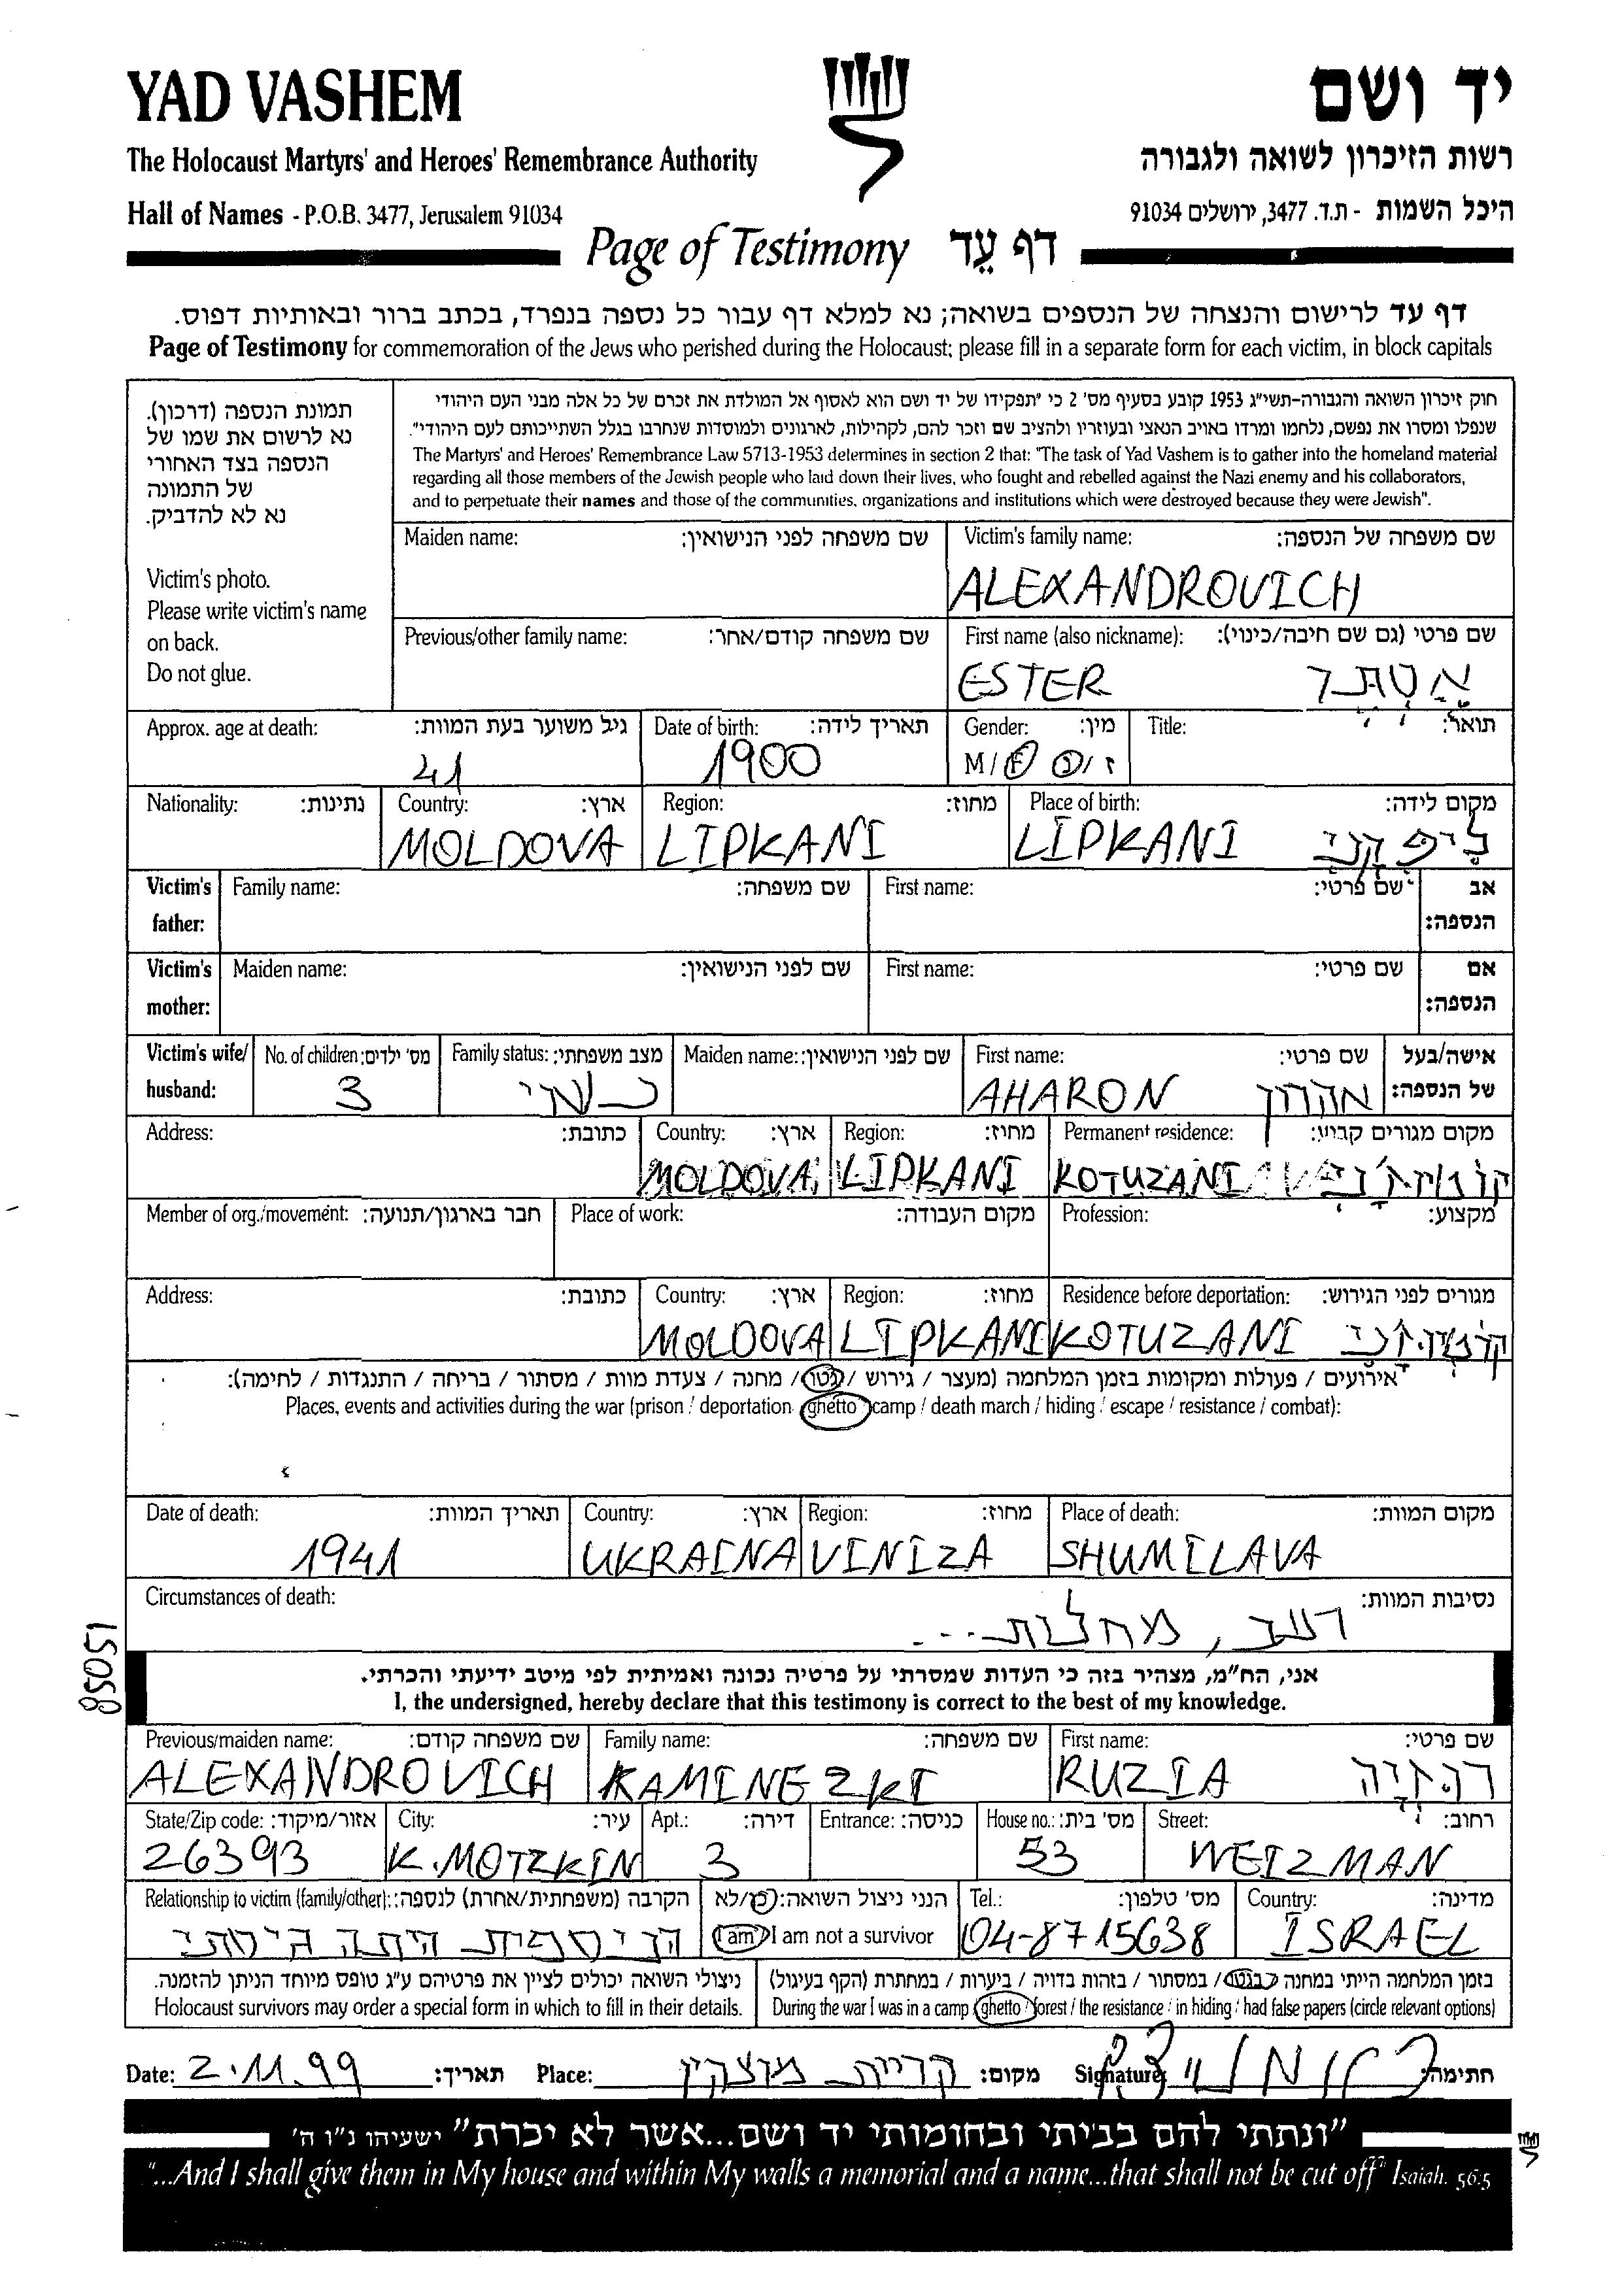 YAD VASHEM
יד ושם
The Holocaust Martyrs' and Heroes' Remembrance Authority
רשות הזיכרון לשואה ולגבורה
Hall of Names - P.O.B. 3477, Jerusalem 91034
היכל השמות - ת.ד. 3477, ירושלים 91034
Page of Testimony דף עֵד
דף עד לרישום והנצחה של הנספים בשואה; נא למלא דף עבור כל נספה בנפרד, בכתב ברור ובאותיות דפוס.
Page of Testimony for commemoration of the Jews who perished during the Holocaust; please fill in a separate form for each victim, in block capitals
תמונת הנספה (דרכון).
נא לרשום את שמו של
הנספה בצד האחורי
של התמונה
נא לא להדביק.
Victim's photo.
Please write victim's name
on back.
Do not glue.
חוק זיכרון השואה והגבורה-תשי"ג 1953 קובע בסעיף מס' 2 כי "תפקידו של יד ושם הוא לאסוף אל המולדת את זכרם של כל אלה מבני העם היהודי
שנפלו ומסרו את נפשם, נלחמו ומרדו באויב הנאצי ובעוזריו ולהציב שם וזכר להם, לקהילות, לארגונים ולמוסדות שנחרבו בגלל השתייכותם לעם היהודי".
The Martyrs' and Heroes' Remembrance Law 5713-1953 determines in section 2 that: "The task of Yad Vashem is to gather into the homeland material
regarding all those members of the Jewish people who laid down their lives, who fought and rebelled against the Nazi enemy and his collaborators,
and to perpetuate their names and those of the communities, organizations and institutions which were destroyed because they were Jewish".
Maiden name: שם משפחה לפני הנישואין:
Victim's family name: שם משפחה של הנספה:
ALEXANDROVICH
Previous/other family name: שם משפחה קודם/אחר:
First name (also nickname): שם פרטי (גם שם חיבה/כינוי):
ESTER אסתר
Approx. age at death: גיל משוער בעת המוות:
41
Date of birth: תאריך לידה:
1900
Gender: מין:
M / F נ / ז
Title: תואר:
Nationality: נתינות:
Country: ארץ:
MOLDOVA
Region: מחוז:
LIPKANI
Place of birth: מקום לידה:
LIPKANI ליפקני
Victim's father:
Family name: שם משפחה:
First name: שם פרטי:
אב הנספה:
Victim's mother:
Maiden name: שם לפני הנישואין:
First name: שם פרטי:
אם הנספה:
Victim's wife/ husband:
No. of children: מס' ילדים:
3
Family status: מצב משפחתי:
נשוי
Maiden name: שם לפני הנישואין:
First name: שם פרטי:
AHARON אהרון
אישה/בעל של הנספה:
Address: כתובת:
Country: ארץ:
MOLDOVA
Region: מחוז:
LIPKANI
Permanent residence: מקום מגורים קבוע:
KOTUZANI
Member of org./movement: חבר בארגון/תנועה:
Place of work: מקום העבודה:
Profession: מקצוע:
Address: כתובת:
Country: ארץ:
MOLDOVA
Region: מחוז:
LIPKANI
Residence before deportation: מגורים לפני הגירוש:
KOTUZANI
אירועים / פעולות ומקומות בזמן המלחמה (מעצר / גירוש / גטו / מחנה / צעדת מוות / מסתור / בריחה / התנגדות / לחימה):
Places, events and activities during the war (prison / deportation ghetto camp / death march / hiding / escape / resistance / combat):
Date of death: תאריך המוות:
1941
Country: ארץ:
UKRAINA
Region: מחוז:
VINIZA
Place of death: מקום המוות:
SHUMILAVA
Circumstances of death: נסיבות המוות:
רעב, מחלות...
85051
אני, הח"מ, מצהיר בזה כי העדות שמסרתי על פרטיה נכונה ואמיתית לפי מיטב ידיעתי והכרתי.
I, the undersigned, hereby declare that this testimony is correct to the best of my knowledge.
Previous/maiden name: שם משפחה קודם:
ALEXANDROVICH
Family name: שם משפחה:
KAMINEZKI
First name: שם פרטי:
RUZIA רוזיה
State/Zip code: אזור/מיקוד:
26393
City: עיר:
K.MOTZKIN
Apt.: דירה:
3
Entrance: כניסה:
House no.: מס' בית:
53
Street: רחוב:
WEIZMAN
Relationship to victim (family/other): הקרבה (משפחתית/אחרת) לנספה:
הניספית היתה גיסתי
הנני ניצול השואה: כן/לא
I am / I am not a survivor
Tel.: מס' טלפון:
04-8715638
Country: מדינה:
ISRAEL
ניצולי השואה יכולים לציין את פרטיהם ע"ג טופס מיוחד הניתן להזמנה.
Holocaust survivors may order a special form in which to fill in their details.
בזמן המלחמה הייתי במחנה / בגטו / במסתור / בזהות בדויה / ביערות / במחתרת (הקף בעיגול)
During the war I was in a camp / ghetto / forest / the resistance / in hiding / had false papers (circle relevant options)
Date: 2.11.99 תאריך: Place: קריית מוצקין מקום: Signature: חתימה:
"ונתתי להם בביתי ובחומותי יד ושם...אשר לא יכרת" ישעיהו נ"ו ה'
"...And I shall give them in My house and within My walls a memorial and a name...that shall not be cut off" Isaiah. 56:5